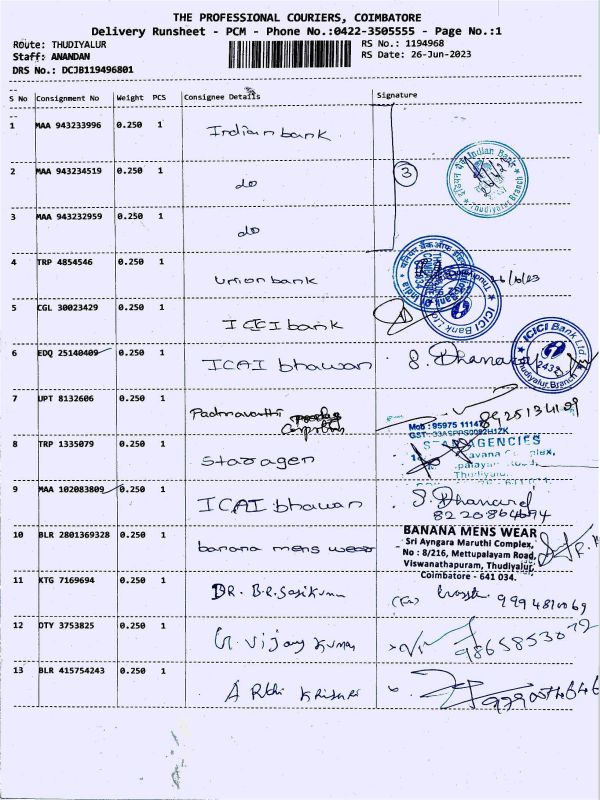 THE PROFESSIONAL COURIERS, COIMBATORE
Delivery Runsheet - PCM - Phone No.:0422-3505555 - Page No.:1
Route: THUDIYALUR
RS No.: 1194968
Staff: ANANDAN
RS Date: 26-Jun-2023
DRS No.: DCJB119496801
S No Consignment No Weight PCS Consignee Details Signature
1 MAA 943233996 0.250 1 Indian bank
2 MAA 943234519 0.250 1 do
3
Indian Bank
Thudiyalur Branch
3 MAA 943232959 0.250 1 do
4 TRP 4854546 0.250 1 union bank
5 CGL 30023429 0.250 1 ICICI bank
ICICI Bank Ltd
6 EDQ 25140409 0.250 1 ICAI bhawan S. Dhanara
ICICI Bank Ltd
2433
Thudiyalur Branch
7 UPT 8132606 0.250 1 Padmavathi
Mob : 95975 11147
8 TRP 1335079 0.250 1 staragen
AGENCIES
9 MAA 102083809 0.250 1 ICAI bhawan S. Dhanard
8220864694
10 BLR 2801369328 0.250 1 banana mens wear
BANANA MENS WEAR
Sri Ayngara Maruthi Complex,
No : 8/216, Mettupalayam Road,
Viswanathapuram, Thudiyalur,
Coimbatore - 641 034.
11 KTG 7169694 0.250 1 DR. B.R. Sasikumar
12 DTY 3753825 0.250 1 G. Vijay Kumar 9865853072
13 BLR 415754243 0.250 1